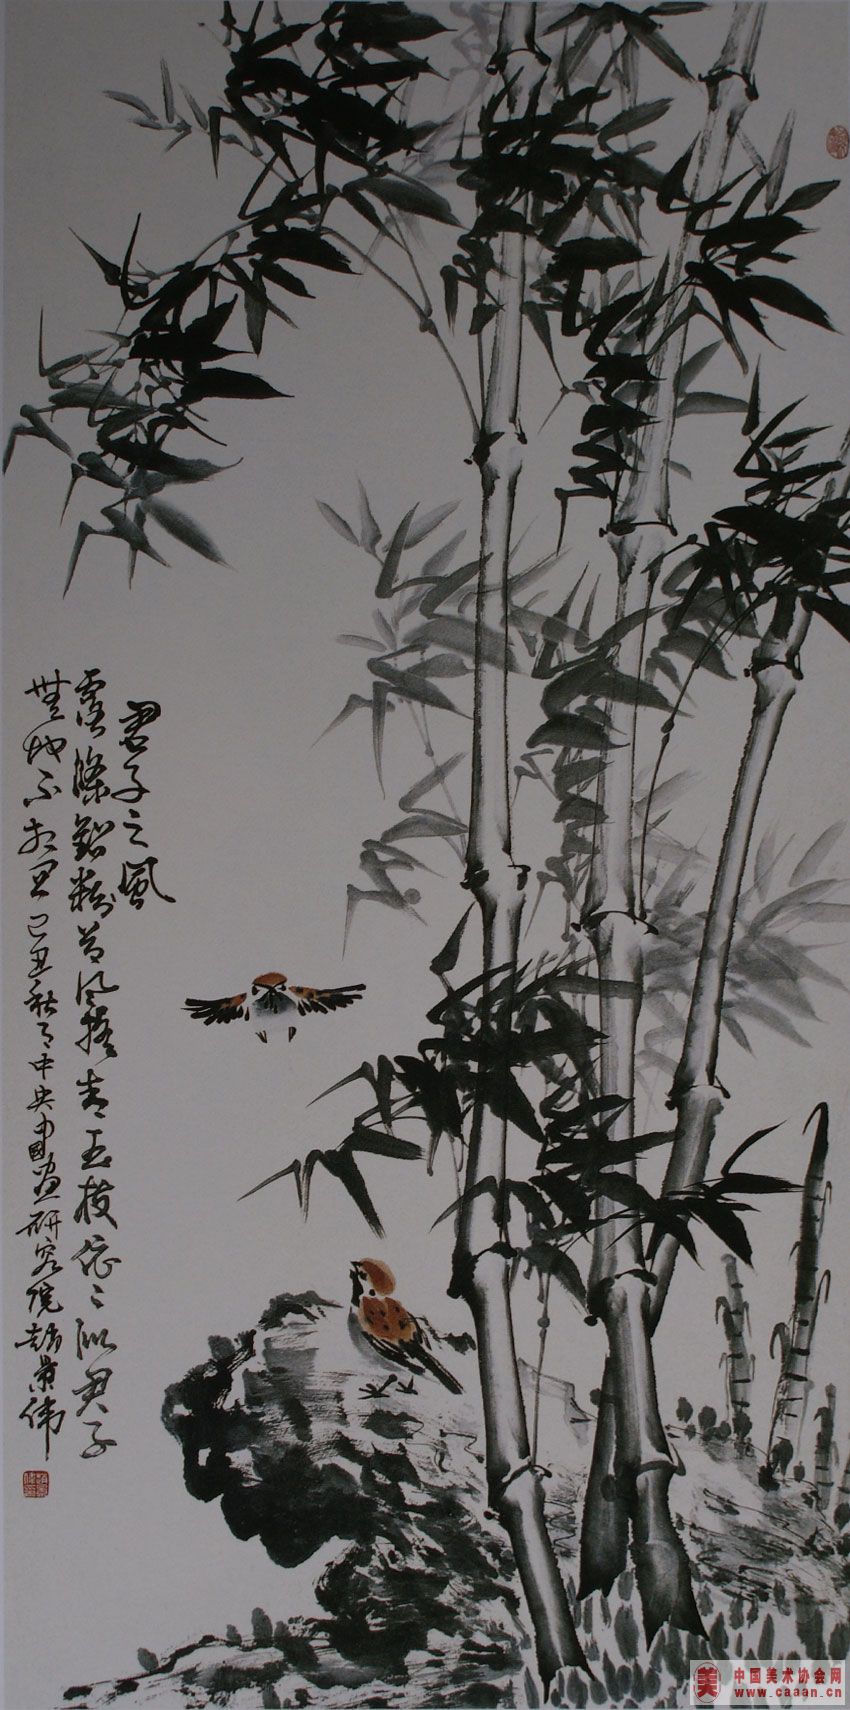 君子之風
露滌鉛粉节风摇青玉枝依依似君子
無地不相宜 己丑秋月中央中國画研究院趙景偉
美 中国美术协会网
www.caaan.cn